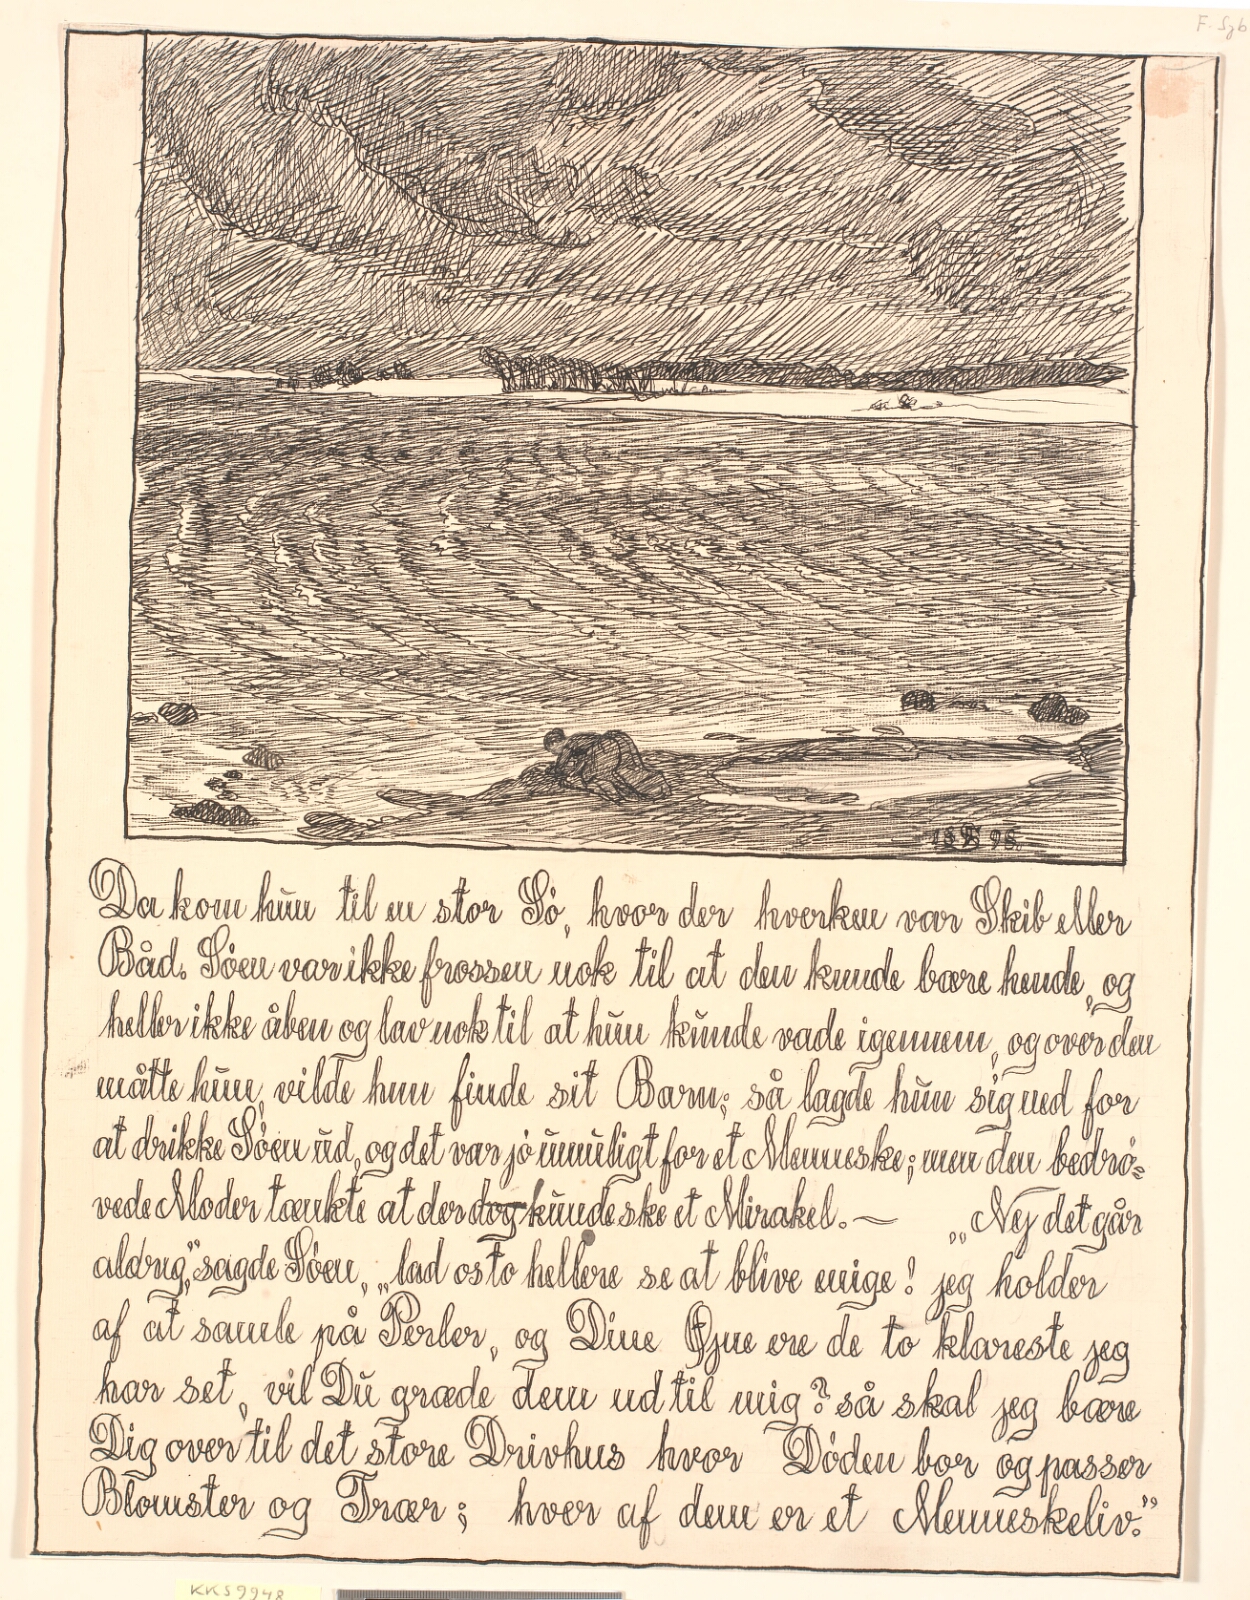 F. Syb
18 FS 98
Da kom hun til en stor Sö, hvor der hverken var Skib eller
Båd. Söen var ikke frossen nok til at den kunde bære hende, og
heller ikke åben og lav nok til at hun kunde vade igennem, og over den
måtte hun, vilde hun finde sit Barn; så lagde hun sig ned for
at drikke Söen ud, og det var jo umuligt for et Menneske; men den bedrö=
vede Moder tænkte at der dog kunde ske et Mirakel. — „Nej det går
aldrig," sagde Söen, „lad os to hellere se at blive enige! jeg holder
af at samle på Perler, og Dine Øjne ere de to klareste jeg
har set, vil Du græde dem ud til mig? så skal jeg bære
Dig over til det store Drivhus hvor Döden bor og passer
Blomster og Træer; hver af dem er et Menneskeliv."
KKS9948